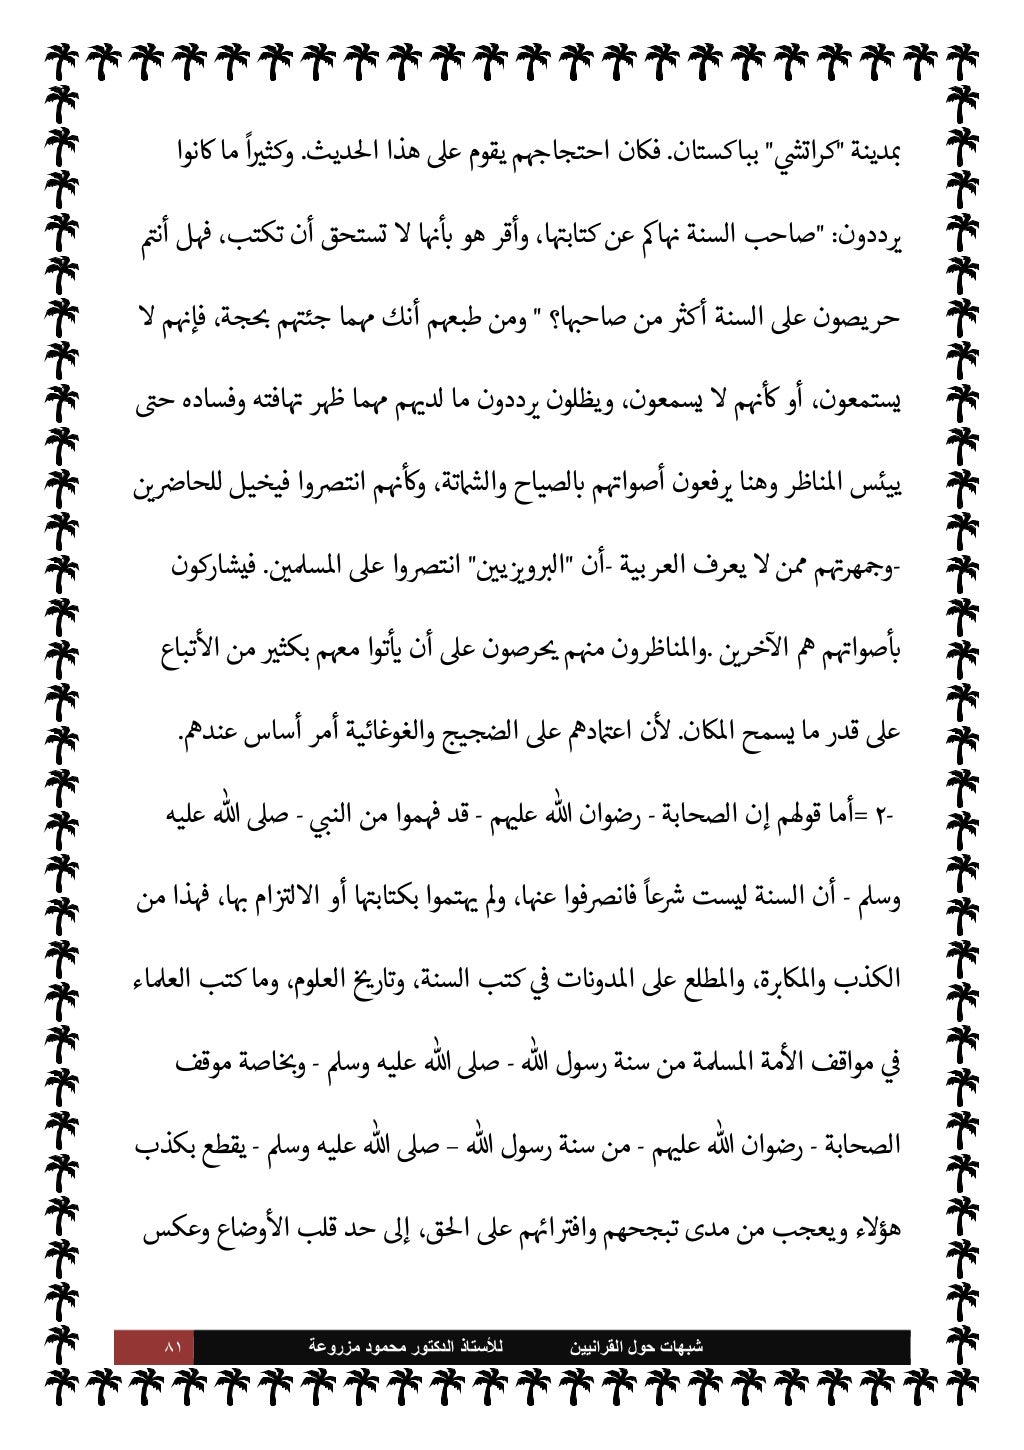 بمدينة "كراتشي" بباكستان. فكان احتجاجهم يقوم على هذا الحديث. وكثيراً ما كانوا
يرددون: "صاحب السنة نهاكم عن كتابتها، وأقر هو بأنها لا تستحق أن تكتب، فهل أنتم
حريصون على السنة أكثر من صاحبها؟ " ومن طبعهم أنك مهما جئتهم بحجة، فإنهم لا
يستمعون، أو كأنهم لا يسمعون، ويظلون يرددون ما لديهم مهما ظهر تهافته وفساده حتى
ييئس المناظر وهنا يرفعون أصواتهم بالصياح والشماتة، وكأنهم انتصروا فيخيل للحاضرين
-وجمهرتهم ممن لا يعرف العربية -أن "البرويزيين" انتصروا على المسلمين. فيشاركون
بأصواتهم هم الآخرين .والمناظرون منهم يحرصون على أن يأتوا معهم بكثير من الأتباع
على قدر ما يسمح المكان. لأن اعتمادهم على الضجيج والغوغائية أمر أساس عندهم.
-٢ =أما قولهم إن الصحابة - رضوان الله عليهم - قد فهموا من النبي - صلى الله عليه
وسلم - أن السنة ليست شرعاً فانصرفوا عنها، ولم يهتموا بكتابتها أو الالتزام بها، فهذا من
الكذب والمكابرة، والمطلع على المدونات في كتب السنة، وتاريخ العلوم، وما كتب العلماء
في مواقف الأمة المسلمة من سنة رسول الله - صلى الله عليه وسلم - وبخاصة موقف
الصحابة - رضوان الله عليهم - من سنة رسول الله – صلى الله عليه وسلم - يقطع بكذب
هؤلاء ويعجب من مدى تبجحهم وافترائهم على الحق، إلى حد قلب الأوضاع وعكس
شبهات حول القرانيين للأستاذ الدكتور محمود مزروعة ٨١